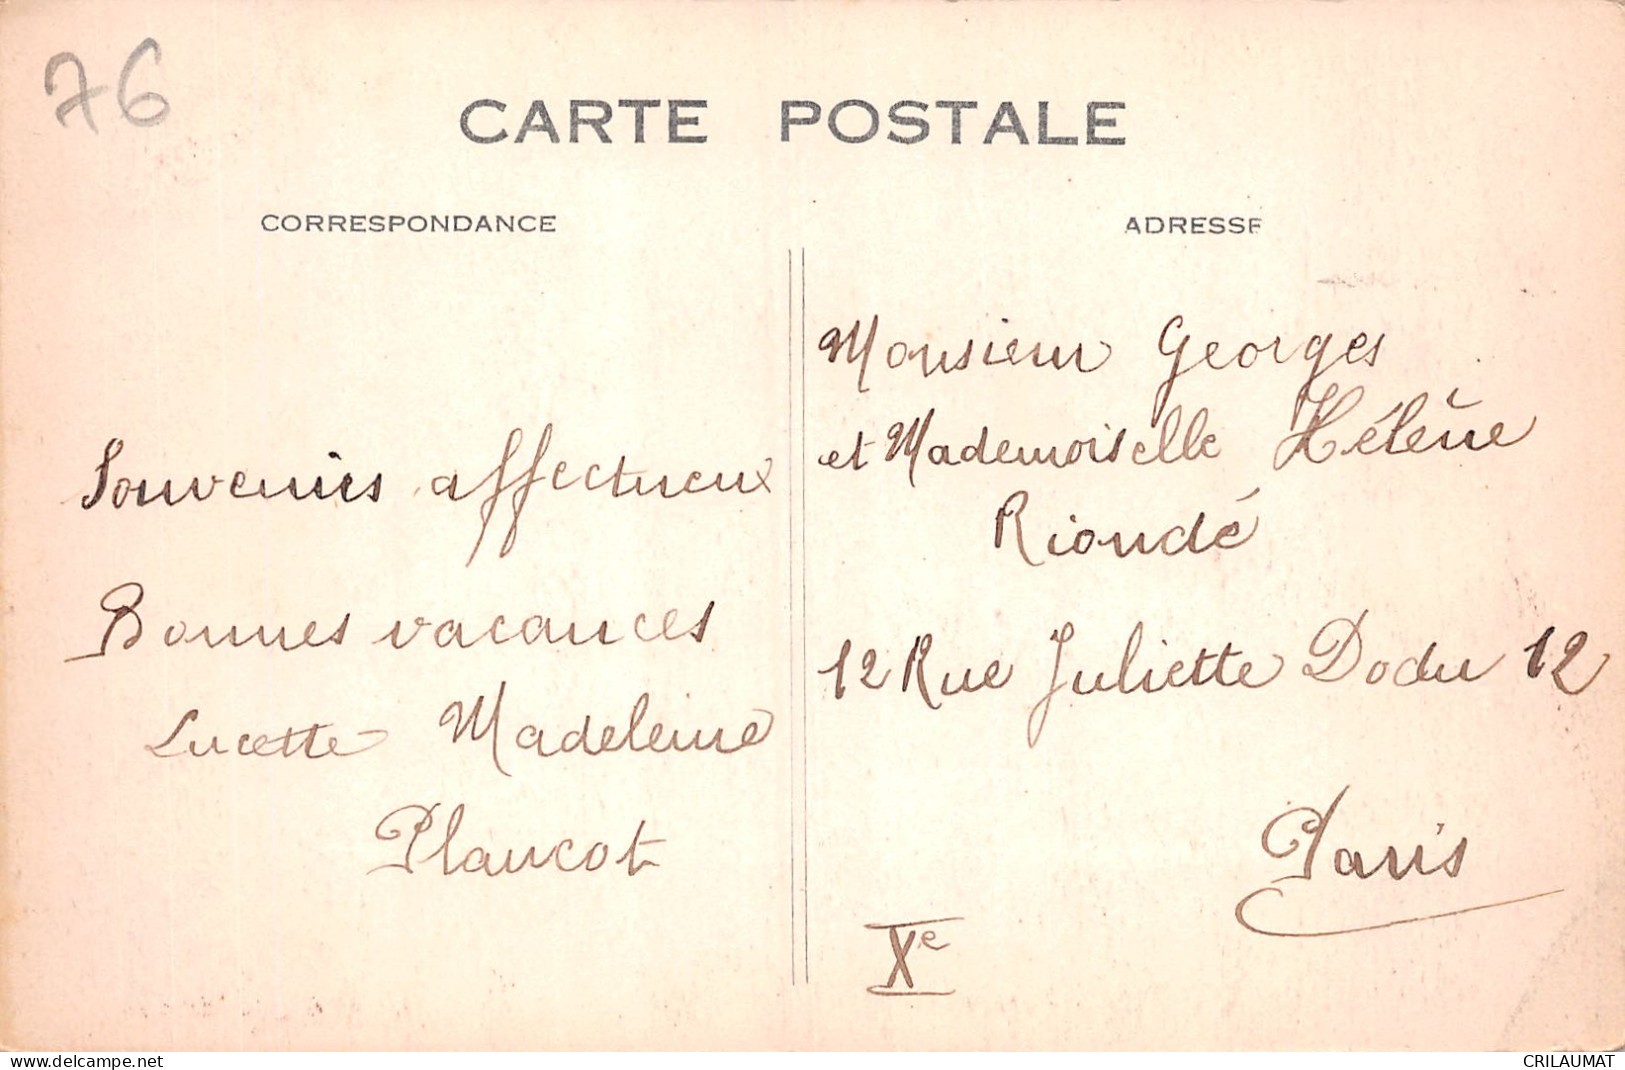 76
CARTE POSTALE
CORRESPONDANCE
Souvenirs affectueux
Bonnes vacances
Lucette Madeleine
Plancot
ADRESSE
Monsieur Georges
et Mademoiselle Hélène
Riondé
12 Rue Juliette Dodu 12
Paris
Xe
www.delcampe.net
CRILAUMAT